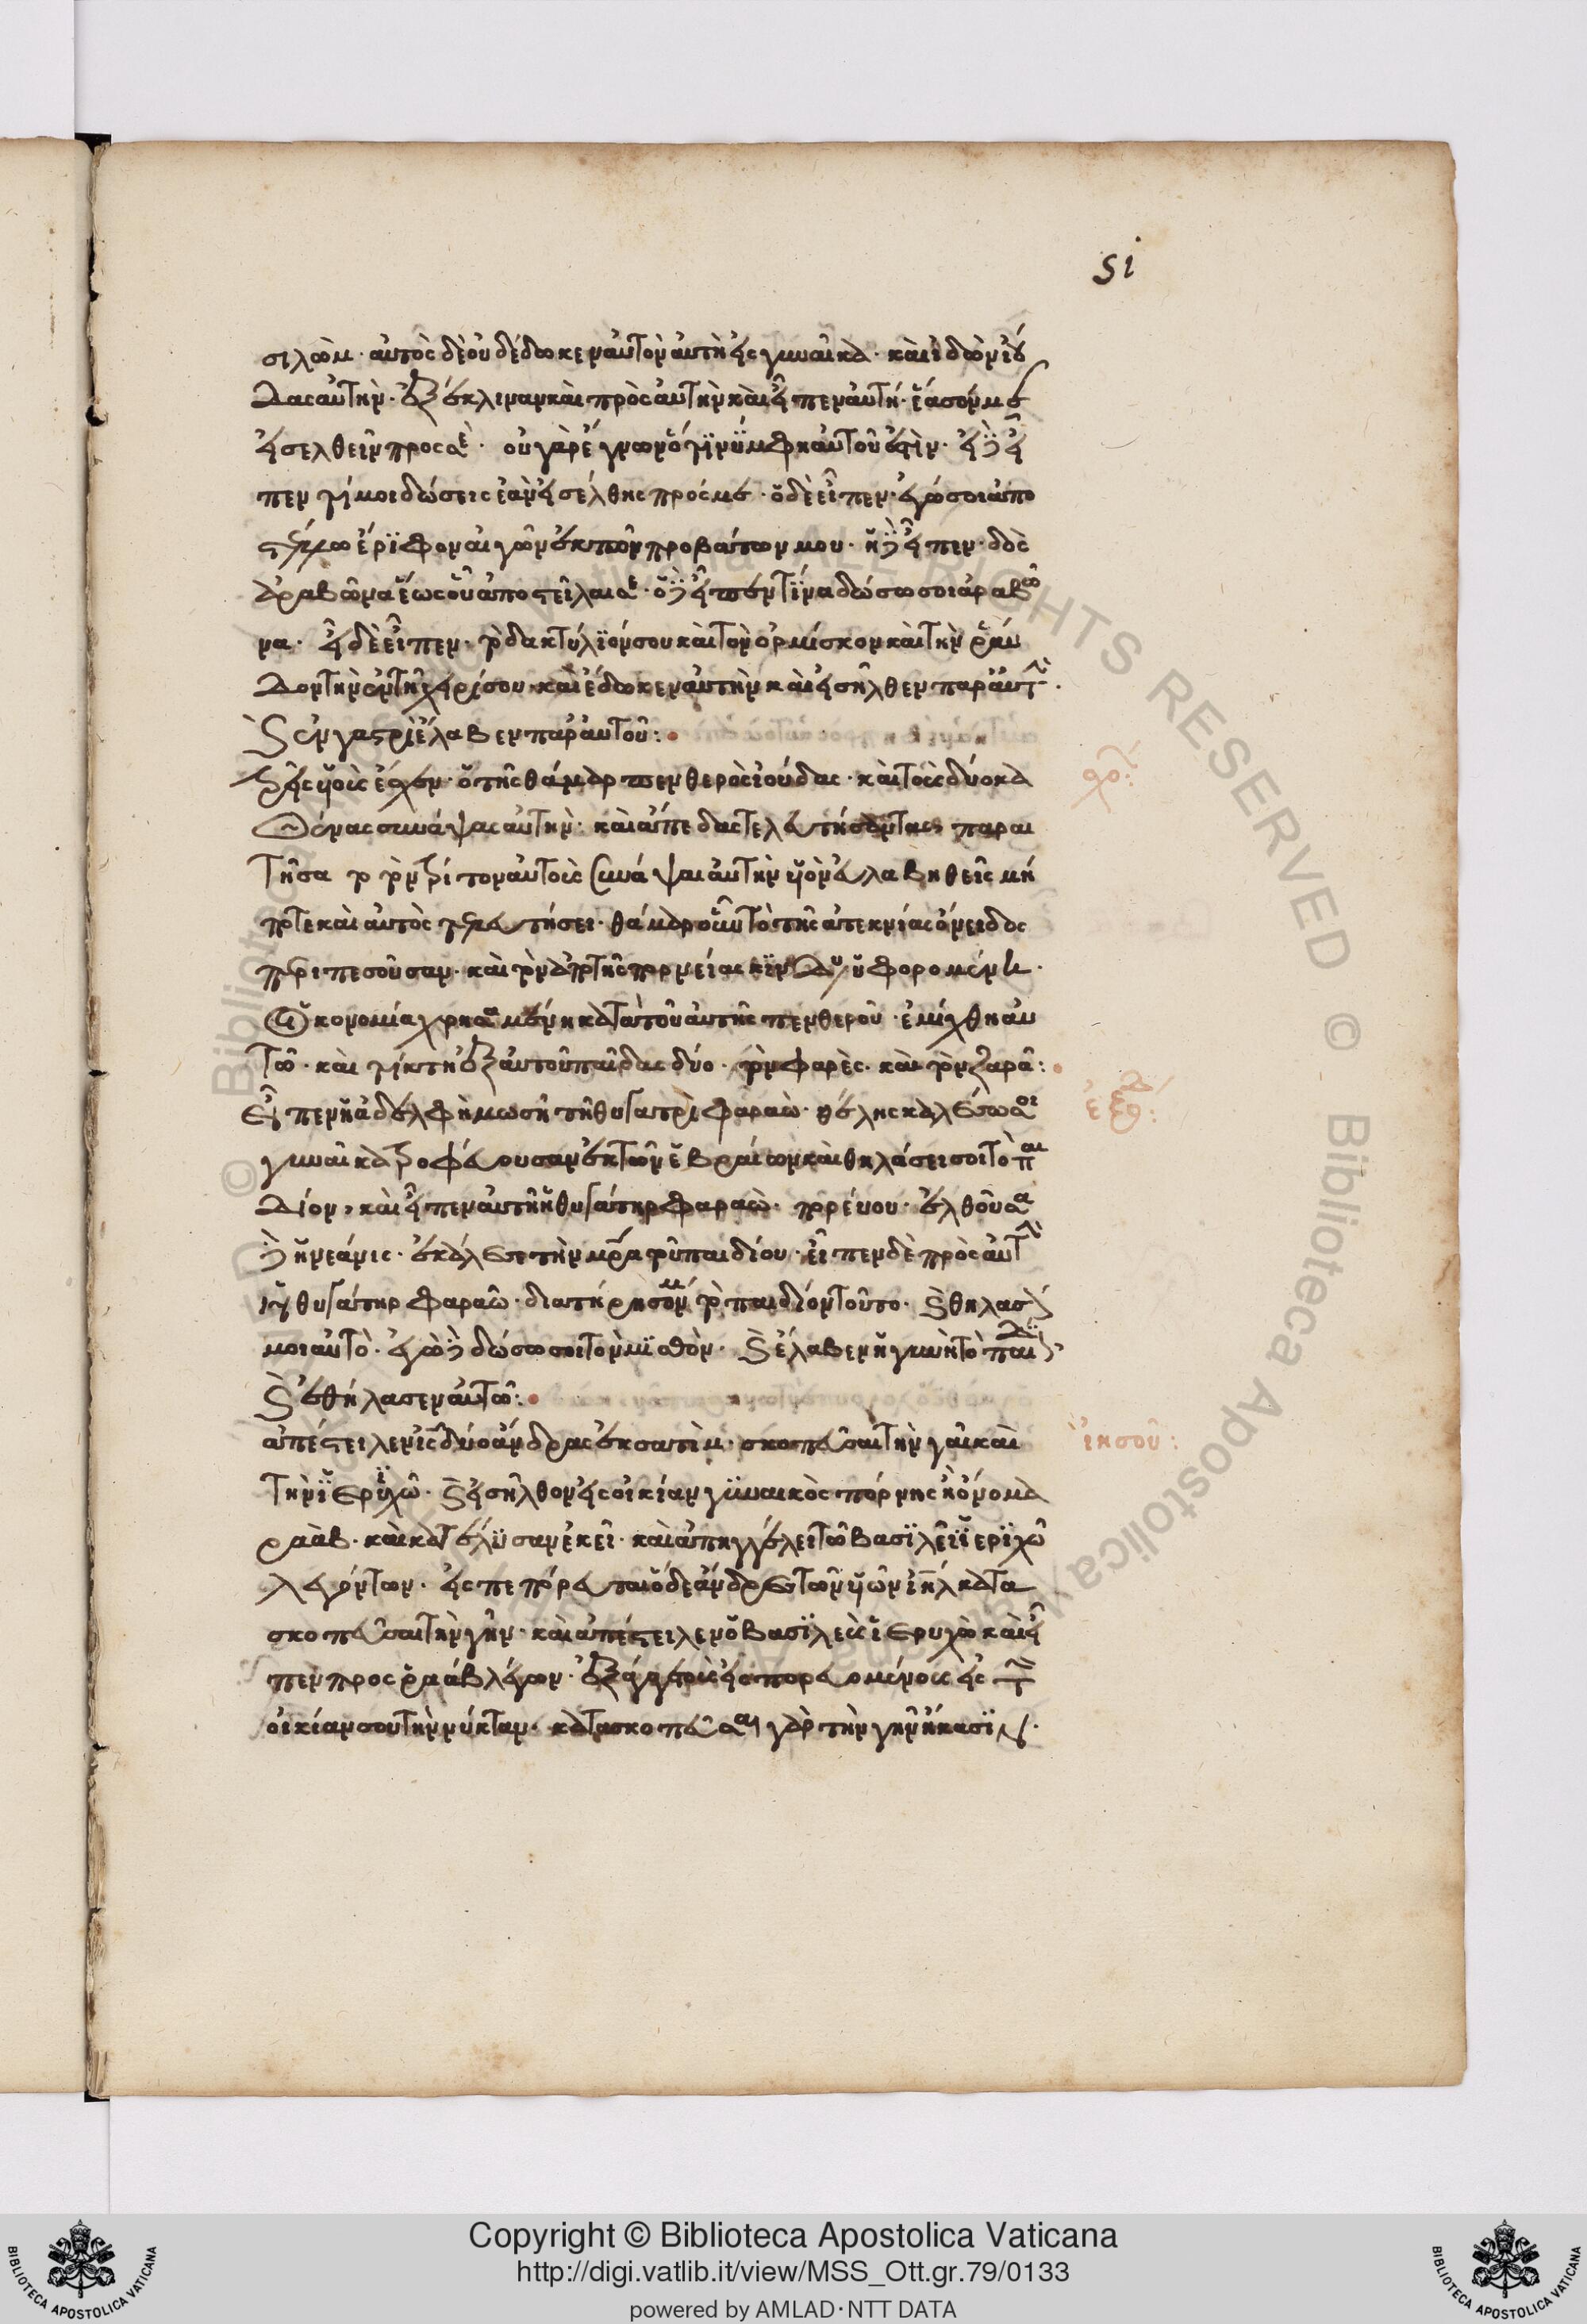 51
σιλὼμ· αὐτὸς δὲ οὐ δέδωκεν αὐτὸν αὐτῆ εἰς γυναῖκα· καὶ ἰδὼν ἰού
δας αὐτὴν· ἐξέκλιναν καὶ πρὸς αὐτὴν καὶ εἶπεν αὐτῆ· ἔασόν με
εἰσελθεῖν πρὸς σὲ· οὐ γὰρ ἔγνων ὅτι νύμφη αὐτοῦ ἐστὶν· ἡ δὲ εἶ
πεν τί μοι δώσεις ἐὰν εἰσέλθης πρός με· ὁ δὲ εἶπεν· ἐγώ σοι ἀπο
στέλλω ἔριφον αἰγῶν ἐκ τῶν προβάτων μου· ἡ δὲ εἶπεν· δὸς
ἀραβῶνα ἕως οὗ ἀποστεῖλαι σε· ὁ δὲ εἶπεν τίνα δώσω σοι ἀραβῶ
να· ἡ δὲ εἶπεν· τὸ δακτύλιόν σου καὶ τὸν ὁρμίσκον καὶ τὴν ῥάβ
δον τὴν ἐν τῆ χειρί σου καὶ ἔδωκεν αὐτὴν καὶ εἰσῆλθεν παρ' αὐτὴν·
καὶ ἐν γαστρὶ ἔλαβεν παρ' αὐτοῦ:
τρεῖς υἱοὺς ἔχων· ὁ τῆς θάμαρ πενθερὸς ἰούδας· καὶ τοὺς δύο κα
συνάψας αὐτὴν· καὶ
τῆσα τὸν τρίτον αὐτοῖς συνάψαι αὐτὴν υἱὸν εὐλαβηθεὶς μή
ποτε καὶ αὐτὸς τελευτήσει· θάμαρ οὖν τὸ τῆς ἀτεκνίας ὄνειδος
καὶ τὸν
οἰκονομία χρησαμένη κατὰ τοῦ αὐτῆς πενθεροῦ· ἐμίχθη αὐ
τῶ· καὶ τίκτει ἐξ αὐτοῦ παῖδας δύο· τὸν φαρὲς· καὶ τὸν ζαρᾶ:
εἶπεν ἡ ἀδελφὴ μωσῆ τῆ θυγατρὶ φαραὼ· θέλης καλέσω σοι
γυναῖκα τροφεύουσαν ἐκ τῶν ἑβραίων καὶ θηλάσει σοι τὸ παι
δίον, καὶ εἶπεν αὐτῆ ἡ θυγάτηρ φαραὼ· πορεύου· ἐλθοῦσα
δὲ ἡ νεάνις· ἐκάλεσε τὴν μητέρα τοῦ παιδίου· εἶπεν δὲ πρὸς αὐτὴν
ἡ θυγάτηρ φαραῶ· διατήρησόν μοι τὸ παιδίον τοῦτο· καὶ θήλασόν
μοι αὐτὸ· ἐγὼ δὲ δώσω σοι τὸν μισθὸν· καὶ ἔλαβεν ἡ γυνὴ τὸ παιδίον
καὶ ἐθήλασεν αὐτῶ:
ἀπέστειλεν ἰησοῦς δύο ἄνδρας ἐκ σατὶμ· σκοπεῦσαι τὴν γῆν καὶ
τὴν ἱεριχῶ· καὶ εἰσῆλθον εἰς οἰκίαν γυναικὸς πόρνης ἧ ὄνομα
ραὰβ· καὶ κατέλυσαν ἐκεῖ· καὶ ἀπηγγέλει τῶ βασιλεῖ ἱεριχῶ
λεγόντων· εἰσπεπόρευνται ὧδε ἄνδρες τῶν υἱῶν ἰσραὴλ κατα
σκοπεῦσαι τὴν γῆν· καὶ ἀπέστειλεν ὁ βασιλεὺς ἱερυχὼ καὶ εἶ
πεν πρὸς ῥαάβ λέγων· ἐξάγαγε τοὺς εἰσπορευομένους εἰς τὴν
οἰκίαν σου τὴν νύκταν· κατασκοπεῦσαι γὰρ τὴν γῆν ἥκασιν·
ἰησοῦ:
Copyright © Biblioteca Apostolica Vaticana
http://digi.vatlib.it/view/MSS_Ott.gr.79/0133
powered by AMLAD·NTT DATA